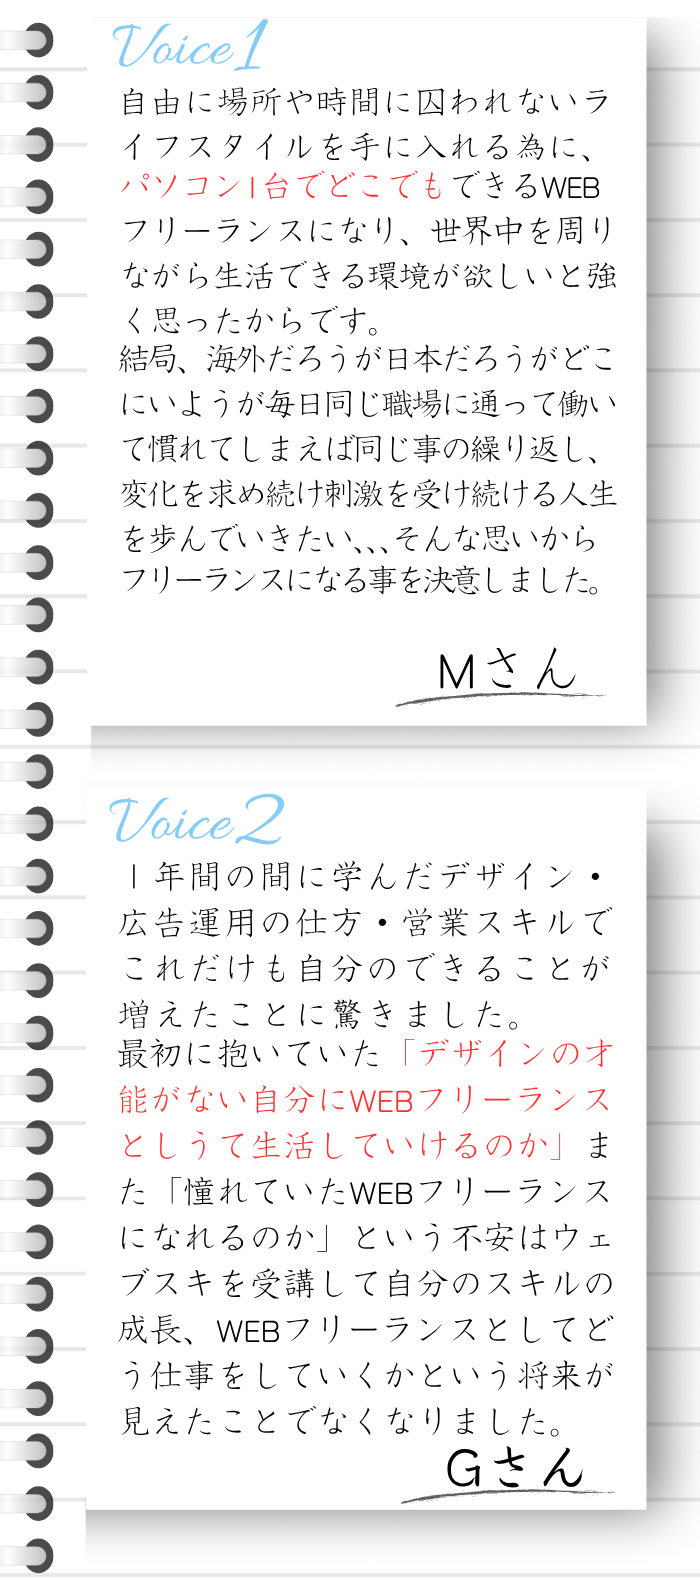 Voice1
自由に場所や時間に囚われないラ
イフスタイルを手に入れる為に、
パソコン1台でどこでもできるWEB
フリーランスになり、世界中を周り
ながら生活できる環境が欲しいと強
く思ったからです。
結局、海外だろうが日本だろうがどこ
にいようが毎日同じ職場に通って働い
て慣れてしまえば同じ事の繰り返し、
変化を求め続け刺激を受け続ける人生
を歩んでいきたい、、、そんな思いから
フリーランスになる事を決意しました。
Mさん
Voice2
1年間の間に学んだデザイン・
広告運用の仕方・営業スキルで
これだけも自分のできることが
増えたことに驚きました。
最初に抱いていた「デザインの才
能がない自分にWEBフリーランス
としうて生活していけるのか」ま
た「憧れていたWEBフリーランス
になれるのか」という不安はウェ
ブスキを受講して自分のスキルの
成長、WEBフリーランスとしてど
う仕事をしていくかという将来が
見えたことでなくなりました。
Gさん